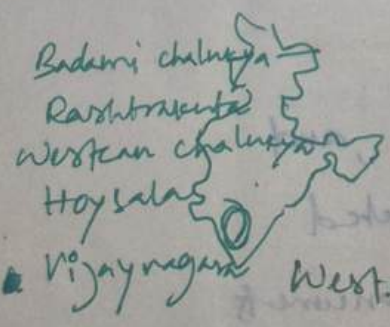 Badami chalukya
Rashtrakuta
Westean chalukya
Hoysalas
Vijaynagara
West.